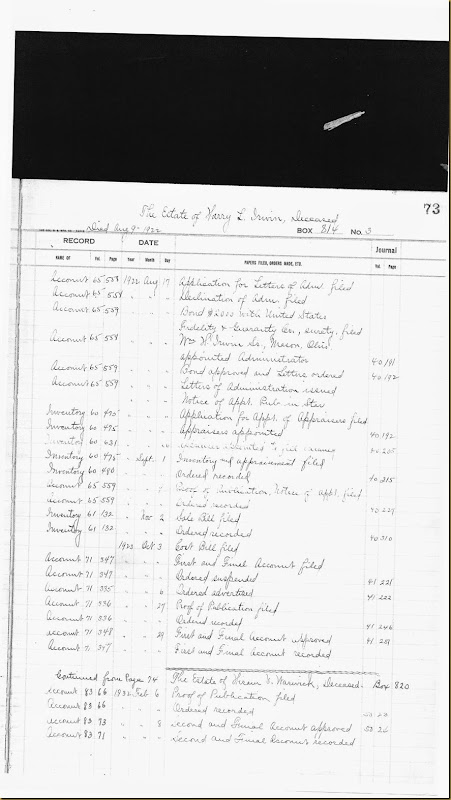 73
The Estate of Harry L. Irwin, Deceased
Died Aug 9- 1922 BOX 814 No. 3
RECORD DATE Journal
NAME OF Vol. Page Year Month Day PAPERS FILED, ORDERS MADE, ETC. Vol. Page
Account 65 558 1922 Aug 17 Application for Letters of Adm. filed
Account 65 558 " " " Declination of Adm. filed
Account 65 559 " " " Bond $2000 with United States
Fidelity & Guaranty Co., surety, filed
Account 65 558 " " " Wm H. Irwin Sr., Mason, Ohio,
appointed Administrator 40,191
Account 65 559 " " " Bond approved and Letters ordered 40,192
Account 65 559 " " " Letters of Administration issued
" " " Notice of Appt. Pub in Star
Inventory 60 495 " " " Application for Appt. of Appraisers filed
Inventory 60 495 " " " Appraisers appointed 40,192
Inventory 60 631 " " 40 205
Inventory 60 495 " Sept. 1 Inventory and appraisement filed
Inventory 60 480 " " " Ordered recorded 40,215
Account 65 559 " " Proof of Publication, Notice of Appt. filed
Account 65 559 " " " Ordered recorded 40 229
Inventory 61 132 " Nov 2 Sale Bill filed
Inventory 61 132 " " " Ordered recorded 40 310
1923 Oct 3 Cost Bill filed
Account 71 347 " " " First and Final Account filed
Account 71 347 " " " Ordered suspended 41 221
Account 71 335 " " 6 Ordered advertised 41 222
Account 71 336 " " 27 Proof of Publication filed
Account 71 336 " " " Ordered recorded 41 246
Account 71 347 " " 29 First and Final Account approved 41 251
Account 71 347 " " " First and Final Account recorded
Continued from Page 74 The Estate of Hiram D. Warwick, Deceased. Box 820
Account 83 66 1932 Feb 6 Proof of Publication filed
Account 83 66 " " " Ordered recorded
Account 83 73 " " 8 Second and Final Account approved 53 26
Account 83 71 " " " Second and Final Account recorded